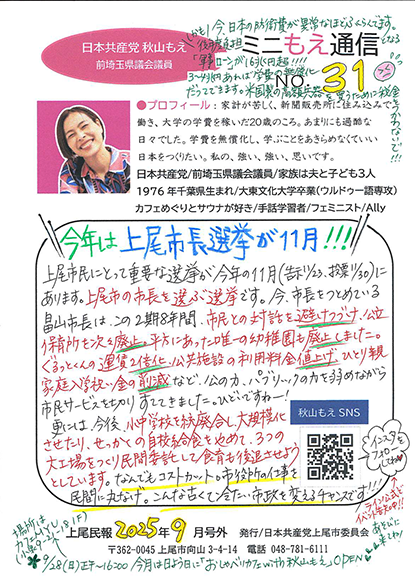 日本共産党 秋山もえ
前埼玉県議会議員
今、日本の防衛費が異常なほどふくらんでます。
ミニもえ通信
NO. 31
●プロフィール：家計が苦しく、新聞販売所に住み込みで
働き、大学の学費を稼いだ20歳のころ。あまりにも過酷な
日々でした。学費を無償化し、学ぶことをあきらめなくていい
日本をつくりたい。私の、強い、強い、思いです。
日本共産党/前埼玉県議会議員/家族は夫と子ども3人
1976年千葉県生まれ/大東文化大学卒業（ウルドゥー語専攻）
カフェめぐりとサウナが好き/手話学習者/フェミニスト/Ally
今年は上尾市長選挙が11月!!!
上尾市民にとって重要な選挙が今年の11月(告示11/23、投票11/30)に
あります。上尾市の市長を選ぶ選挙です。今、市長をつとめている
畠山市長は、この2期8年間、市民との対話を避けつづけ、公立
保育所を次々廃止。平方にあった唯一の幼稚園も廃止しました。
ぐるっとくんの運賃2倍化、公共施設の利用料金値上げ、ひとり親
家庭入学祝い金の削減など、公の力、パブリックの力を弱めながら
市民サービスを切りすててきました。ひどいですねー!
更には、今後、小中学校を統廃合し、大規模化
させたり、せっかくの自校給食をやめて、3つの
大工場をつくり民間委託して食育も後退させよう
としています。なんでもコストカット。市役所の仕事を
民間に丸なげ。こんな古くて冷たい市政を変えるチャンスです!!!
秋山もえ SNS
インスタを
フォロー
してね
上尾民報 2025年9月号外 発行/日本共産党上尾市委員会
〒362-0045 上尾市向山3-4-14 電話 048-781-6111
9/28(日)正午〜16:00 今月は日よう日に「おしゃべりカフェwith秋山もえ」OPEN